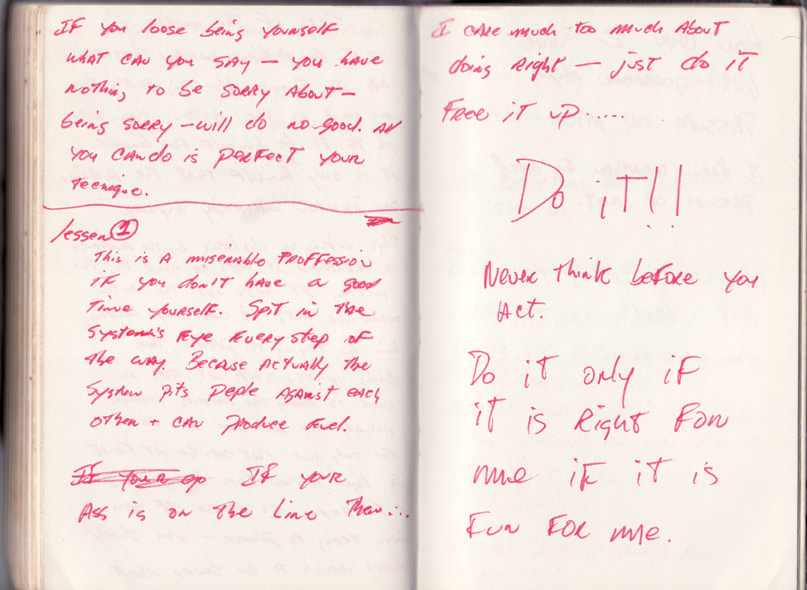 If you loose being yourself
what can you say – you have
nothing to be sorry about –
being sorry – will do no good. All
you can do is perfect your
tecnique.
lesson 1
This is a miserable proffession
if you don't have a good
time yourself. Spit in the
System's Eye every step of
the way. Because actually the
System pits peple against each
other + can produce fuel.
If your
Ass is on the line then...
I care much too much about
doing right – just do it
Free it up.....
Do it!!
Never think before you
Act.
Do it only if
it is right for
me if it is
Fun for me.